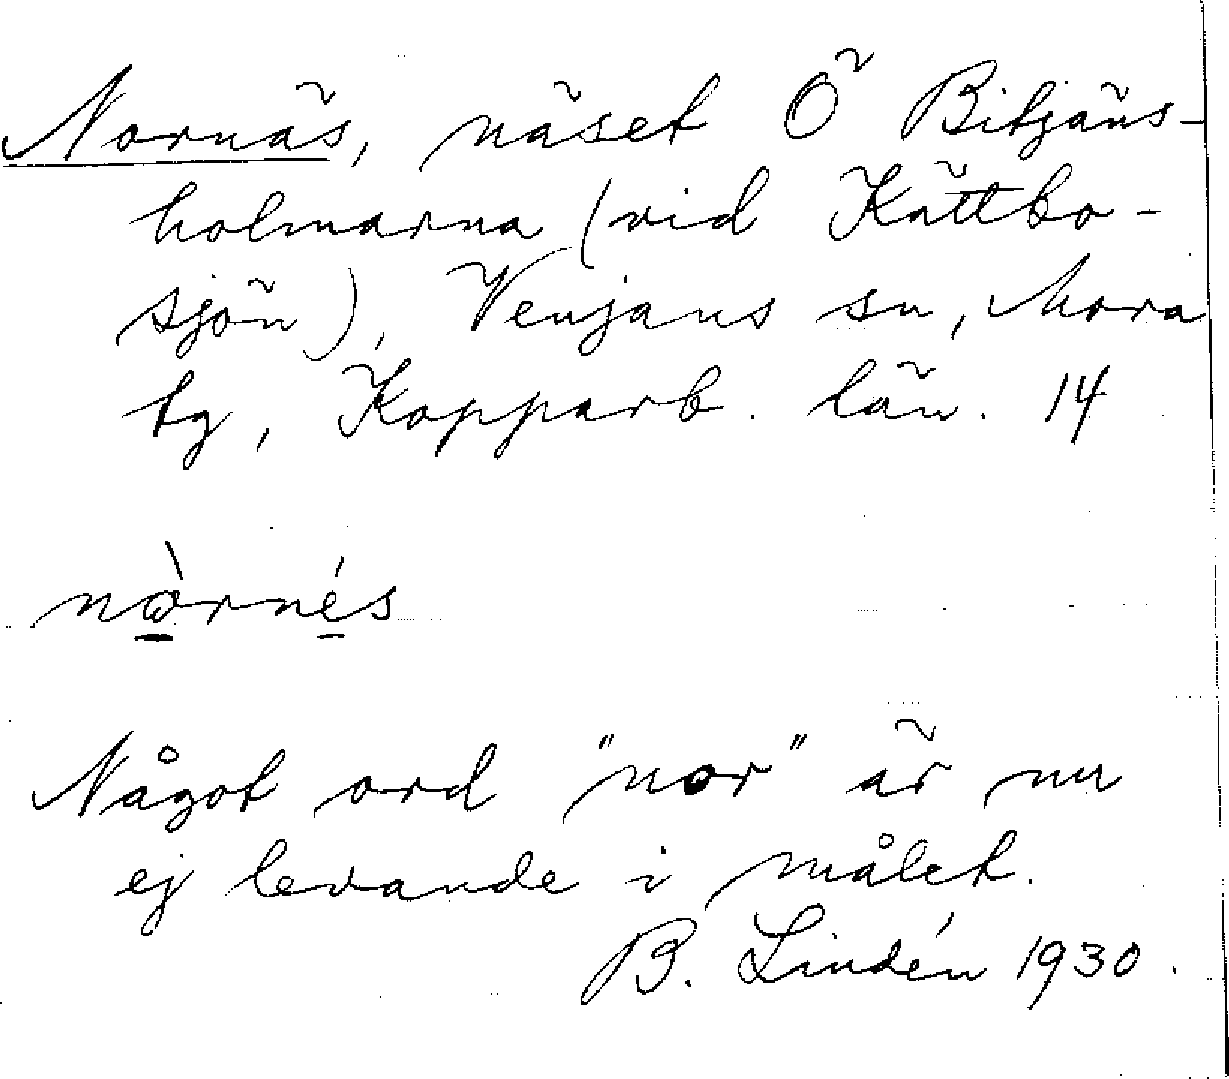 Nornäs, näset Ö Bitjäns-
holmarna (vid Kättbo-
sjön), Venjans sn, Mora
tg, Kopparb. län. 14
nòrnés
Något ord "nor" är nu
ej levande i målet.
B. Lindén 1930.